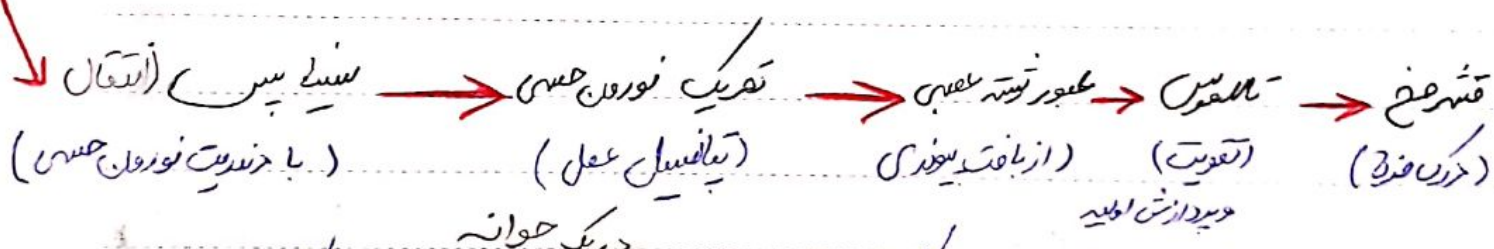 سیناپس (انتقال → تحریک نورون حسی → عبور رشته عصبی → تالاموس → قشر مخ
(با دندریت نورون حسی) (پتانسیل عمل) (از بافت پیوندی) (تقویت) (درک مزه)
و پردازش اولیه
در یک جوانه